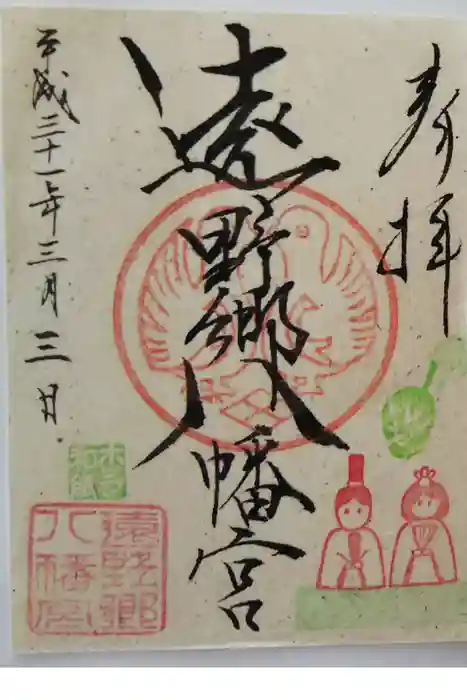 奉拝
遠野郷八幡宮
平成三十一年三月三日
遠野郷
八幡宮